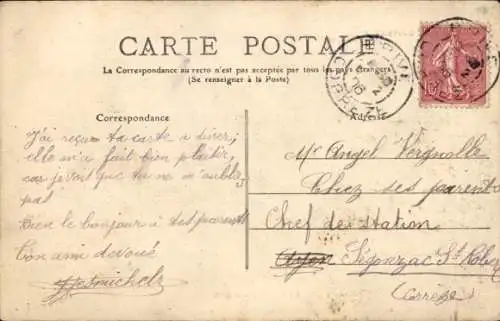 CARTE POSTALE
La Correspondance au recto n'est pas acceptée par tous les pays étrangers
(Se renseigner à la Poste)
Correspondance
Adresse
J'ai reçue ta carte a
elle m'a fait bien plaisir,
car je vois que tu ne m'oublie
pas
Bien le bonjour à tes parents
Ton ami dévoué
Mr Angel Vergnolle
Chez ses parents
Chef de station
Ayen Segonzac St Robert
(Corrèze)